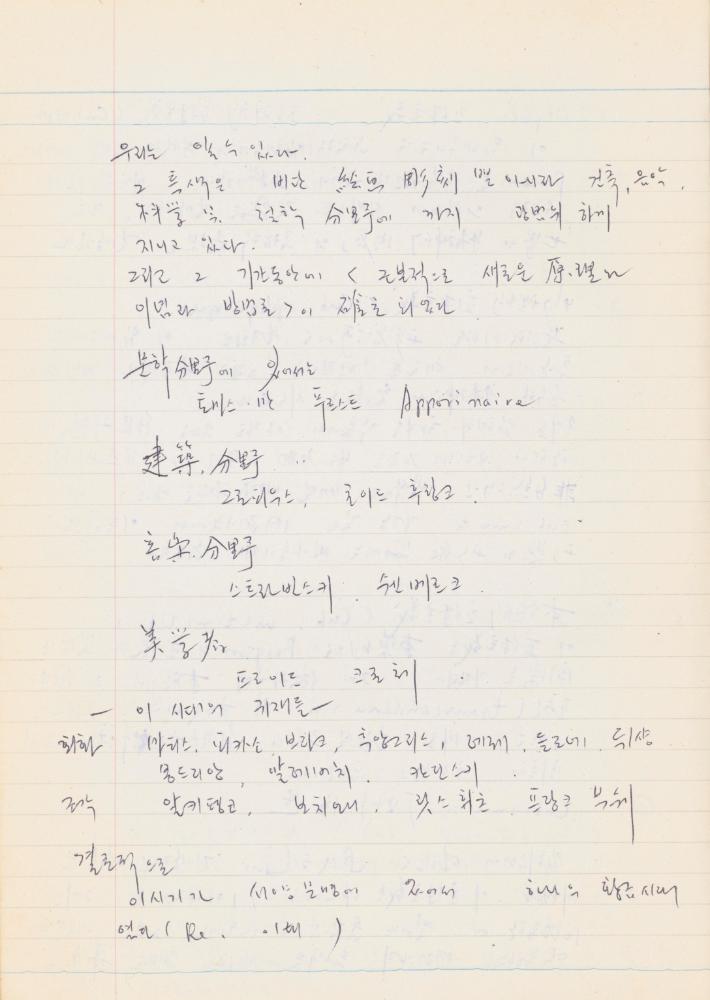 우리는 알 수 있다.
그 특색은 비단 絵画 彫刻 뿐 아니라 건축, 음악,
科学 및 철학 分野에 까지 광범위 하게
지니고 있다.
그리고 그 기간동안에 < 근본적으로 새로운 原理와
이념과 방법론 > 이 确효 되었다.
문학 分野에 있어서는
토마스·만 푸르스트 Apporinaire
建築. 分野
그로피우스, 로이드 후랑크.
音楽. 分野
스트라빈스키. 쉔베르크.
美学者
프로이드 크로체
— 이 시대의 귀재들 —
회화 마티스. 피카소, 브라크, 후앙그리스, 레제, 들로네, 뒤샹
몽드리앙, 말레비치. 칸딘스키.
조각 알키펭코, 보치오니. 릿스휘츠. 프랑크 부쉬
결론적으로
이시기가 서양문명에 있어서 하나의 황금시대
였다 ( Re. 이해 )